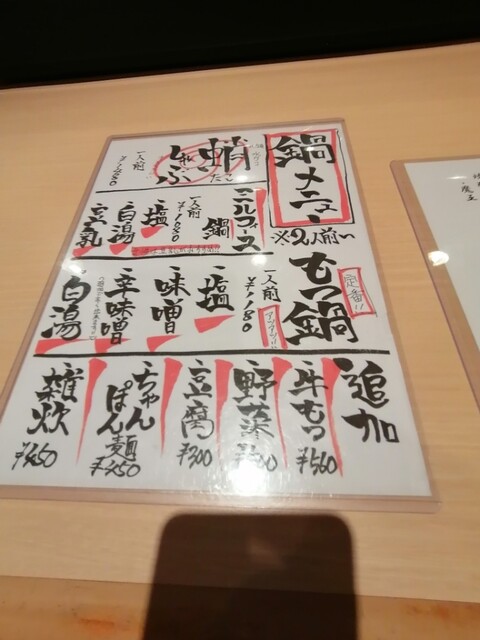 鍋メニュー
※2人前〜
蛸
たこ
しゃぶ
一人前
ミルフィーユ
鍋
一人前
¥1080
・塩
・白湯
・豆乳
もつ鍋
定番!!
一人前
¥1180
・塩
・味噌
・辛味噌
・白湯
追加
・牛もつ
¥560
・野菜
・豆腐
¥300
・ちゃんぽん麺
・雑炊